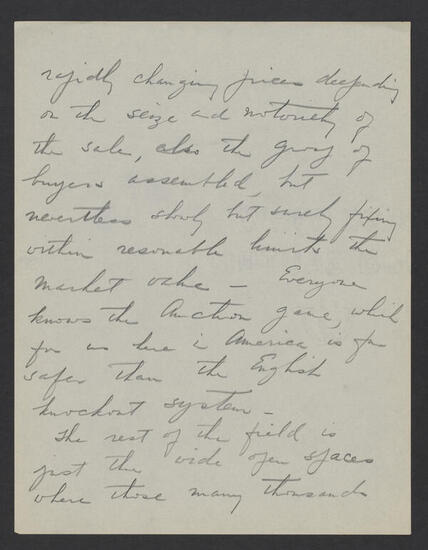 rapidly changing prices depending
on the seize and notoriety of
the sale, also the group of
buyers assembled, but
nevertless slowly but surely fixing
within resonable limits the
market value — Everyone
knows the Auction game, which
for us here in America is far
safer than the English
knockout system —
The rest of the field is
just the wide open spaces
where those many thousands